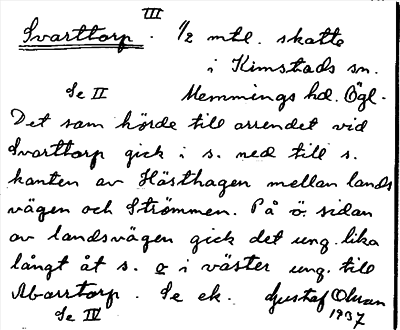 III
Svarttorp. 1/2 mtl. skatte
i Kimstads sn.
Se II Memmings hd. Ögl.
Det som hörde till arrendet vid
Svarttorp gick i s. ned till s.
kanten av Hästhagen mellan lands
vägen och Strömmen. På ö. sidan
av landsvägen gick det ung. lika
långt åt s. o i väster ung. till
Abarrtorp. Se ek. Gustaf Olsson
Se IV 1937